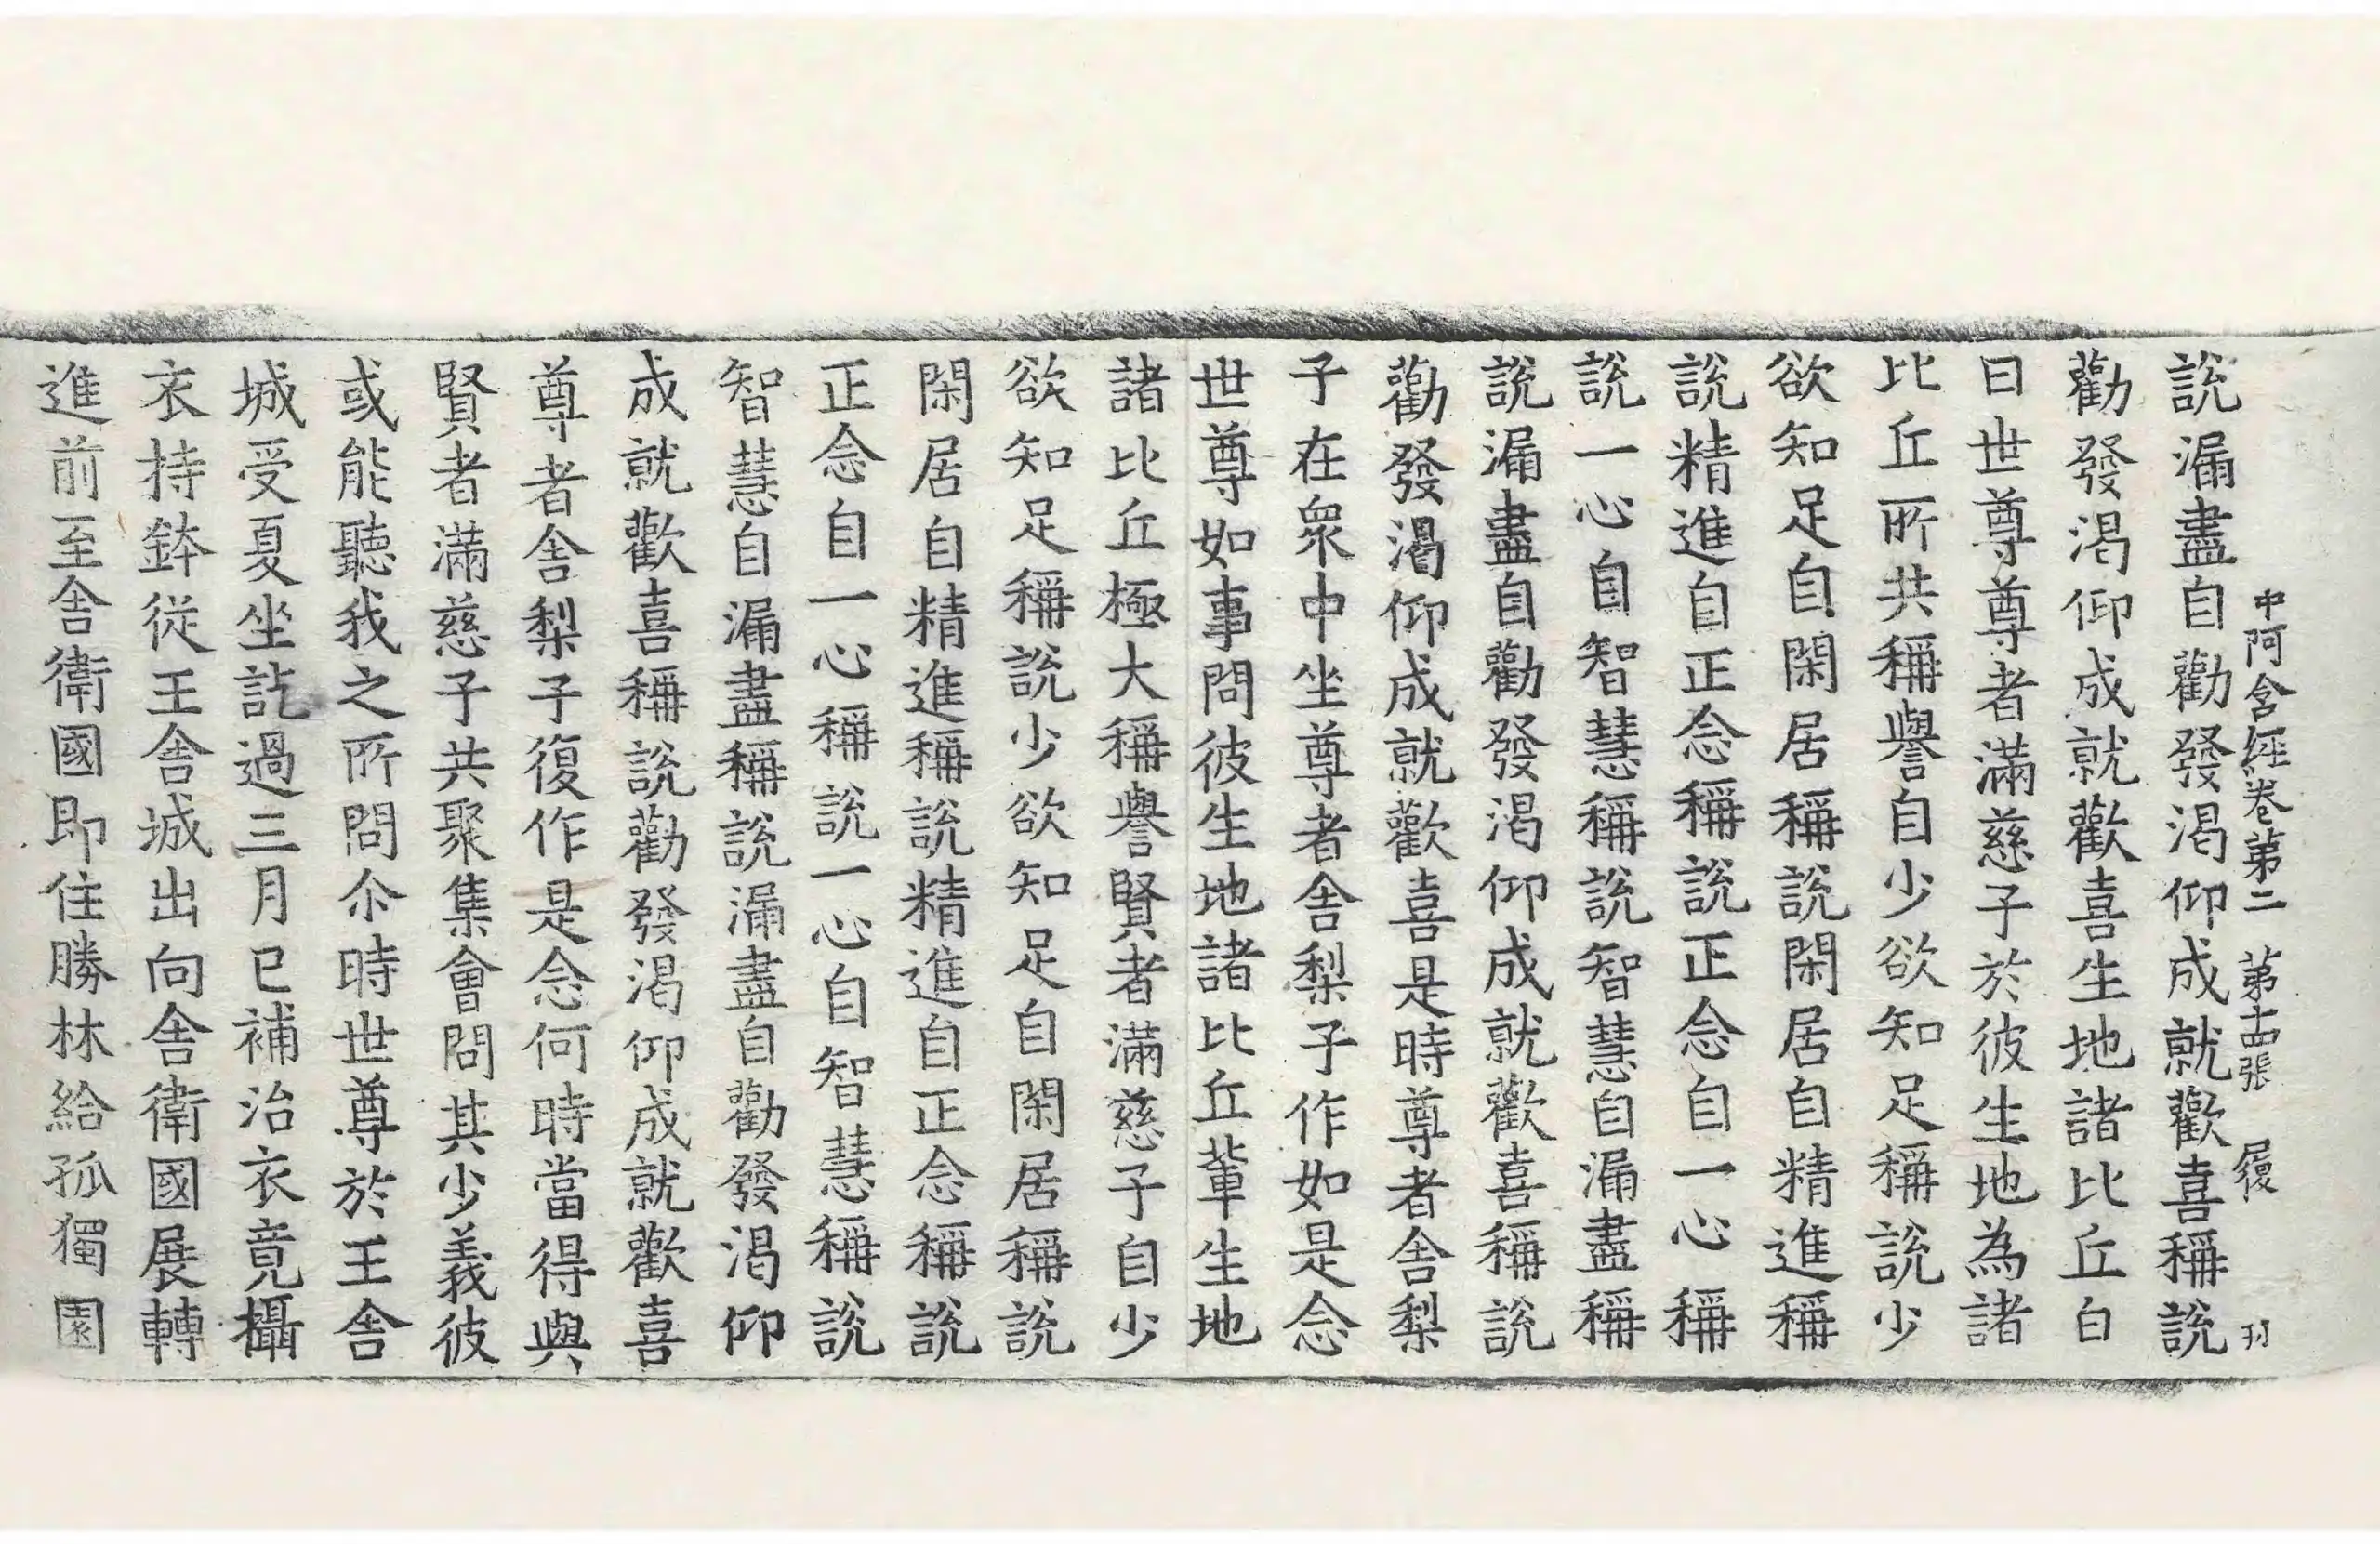 中阿含經卷第二　第十四張　履　刊
說漏盡自勸發渴仰成就歡喜稱說
勸發渴仰成就歡喜生地諸比丘白
曰世尊尊者滿慈子於彼生地為諸
比丘所共稱譽自少欲知足稱說少
欲知足自閑居稱說閑居自精進稱
說精進自正念稱說正念自一心稱
說一心自智慧稱說智慧自漏盡稱
說漏盡自勸發渴仰成就歡喜稱說
勸發渴仰成就歡喜是時尊者舍梨
子在衆中坐尊者舍梨子作如是念
世尊如事問彼生地諸比丘輩生地
諸比丘極大稱譽賢者滿慈子自少
欲知足稱說少欲知足自閑居稱說
閑居自精進稱說精進自正念稱說
正念自一心稱說一心自智慧稱說
智慧自漏盡稱說漏盡自勸發渴仰
成就歡喜稱說勸發渴仰成就歡喜
尊者舍梨子復作是念何時當得與
賢者滿慈子共聚集會問其少義彼
或能聽我之所問尒時世尊於王舍
城受夏坐訖過三月已補治衣竟攝
衣持鉢從王舍城出向舍衛國展轉
進前至舍衛國即住勝林給孤獨園